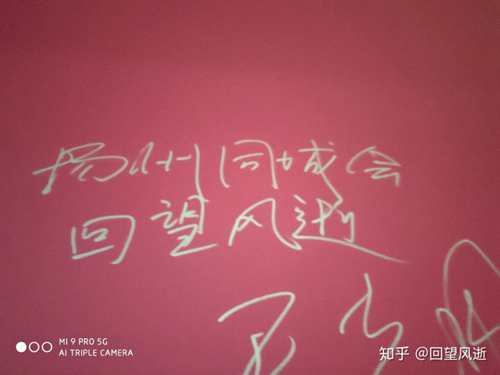 扬州同城会
回望风逝
MI 9 PRO 5G
AI TRIPLE CAMERA
知乎 @回望风逝